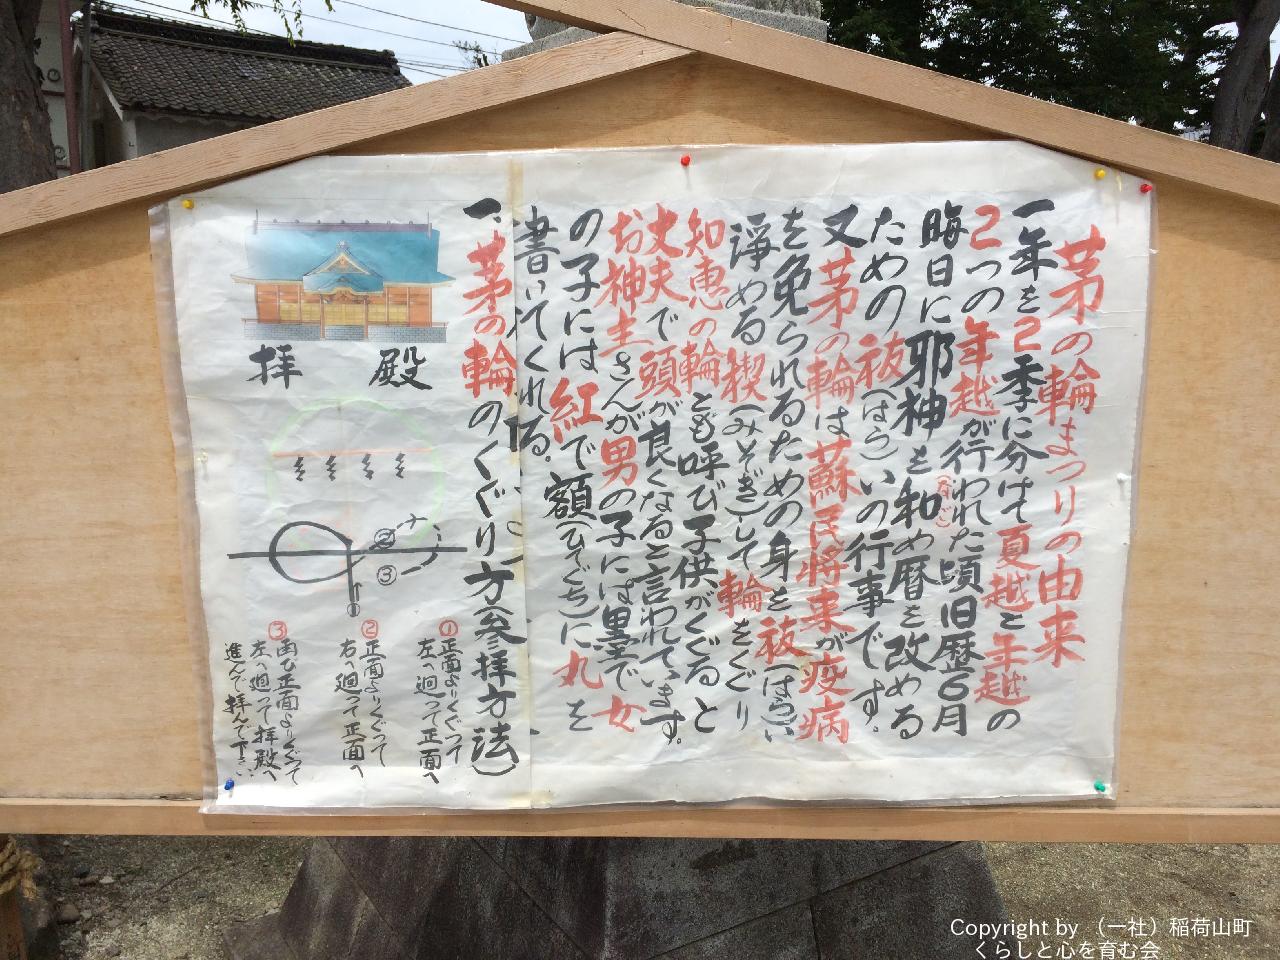 茅の輪まつりの由来
一年を2季に分けて夏越と年越の
2つの年越が行われた頃旧歴6月
晦日に邪神を和め暦を改める
(なご)
ための祓(はら)いの行事です。
又茅の輪は蘇民将来が疫病
を免られるための身を祓(はらい)
諍める禊(みそぎ)して輪をくぐり
知恵の輪とも呼び子供がくぐると
丈夫で頭が良くなると言われています。
お神主さんが男の子には墨で女
の子には紅で額(ひてぐち)に丸を
書いてくれる。
一、茅の輪のくぐり方(参拝方法)
拝殿
②
③
①正面よりくぐって
左へ廻って正面へ
②正面よりくぐって
右へ廻って正面へ
③再び正面よりくぐって
左へ廻って拝殿へ
進んで拝んで下さい
Copyright by （一社）稲荷山町
くらしと心を育む会